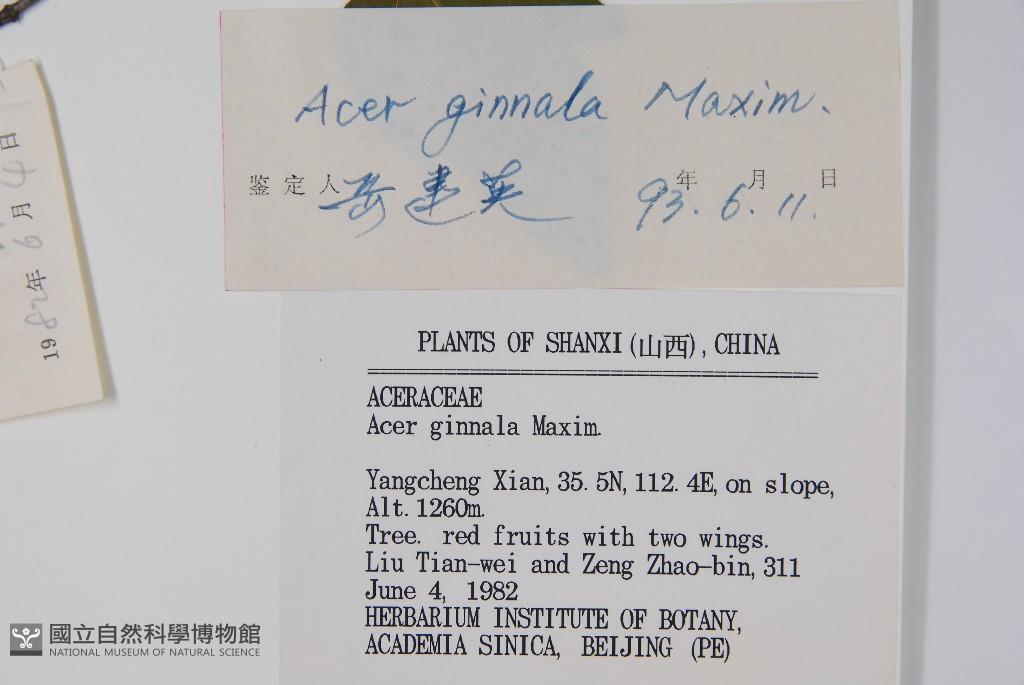 Acer ginnala Maxim.
鉴定人 岳建英 93年6月11日
1982年6月4日
PLANTS OF SHANXI (山西), CHINA
ACERACEAE
Acer ginnala Maxim.
Yangcheng Xian, 35.5N, 112.4E, on slope,
Alt. 1260m.
Tree. red fruits with two wings.
Liu Tian-wei and Zeng Zhao-bin, 311
June 4, 1982
HERBARIUM INSTITUTE OF BOTANY,
ACADEMIA SINICA, BEIJING (PE)
國立自然科學博物館
NATIONAL MUSEUM OF NATURAL SCIENCE